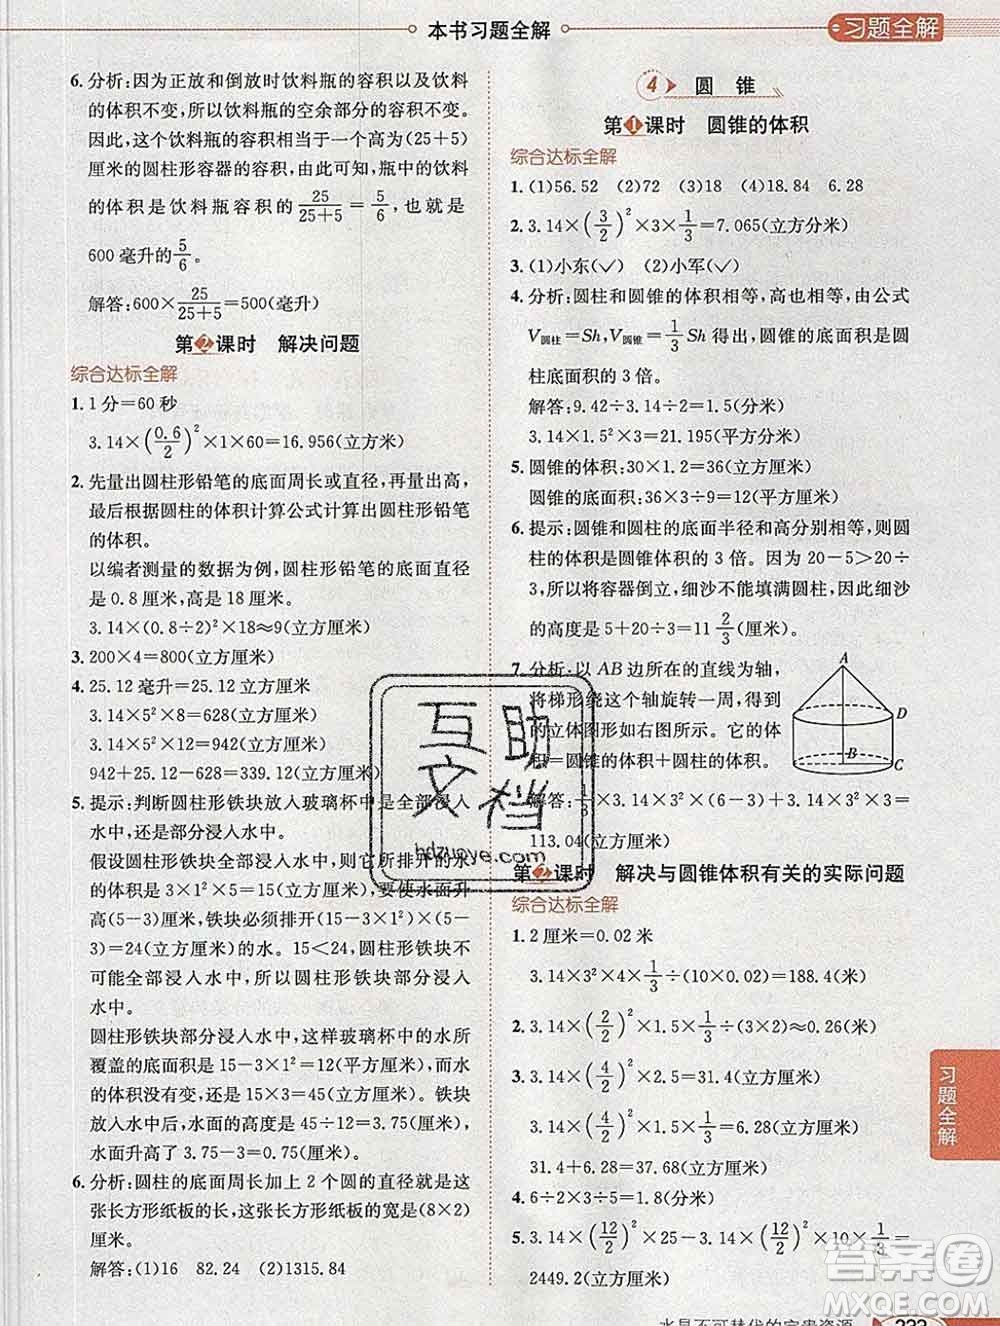 本书习题全解
习题全解
6. 分析:因为正放和倒放时饮料瓶的容积以及饮料
的体积不变,所以饮料瓶的空余部分的容积不变。
因此,这个饮料瓶的容积就相当于一个高为(25+5)
厘米的圆柱形容器的容积,由此可知,瓶中的饮料
的体积是饮料瓶容积的 25/(25+5)=5/6,也就是
600 毫升的 5/6。
解答:600×25/(25+5)=500(毫升)
第2课时 解决问题
综合达标全解
1. 1 分=60 秒
3.14×(0.6/2)²×1×60=16.956(立方米)
2. 先量出圆柱形铅笔的底面周长或直径,再量出高,
最后根据圆柱的体积计算公式计算出圆柱形铅笔
的体积。
以编者测量的数据为例,圆柱形铅笔的底面直径
是 0.8 厘米,高是 18 厘米。
3.14×(0.8÷2)²×18≈9(立方厘米)
3. 200×4=800(立方厘米)
4. 25.12 毫升=25.12 立方厘米
3.14×5²×8=628(立方厘米)
3.14×5²×12=942(立方厘米)
942+25.12-628=339.12(立方厘米)
5. 提示:判断圆柱形铁块放入玻璃杯中是全部浸入
水中,还是部分浸入水中。
假设圆柱形铁块全部浸入水中,则它所排开的水
的体积是 1²×15=15(立方厘米),要使水面升高
(5-3)厘米,铁块必须排开(15-3×1²)×(5-3)
=24(立方厘米)的水。15<24,圆柱形铁块不可
能全部浸入水中,所以圆柱形铁块只能部分浸入
水中。
圆柱形铁块部分浸入水中,这样玻璃杯中的水所
覆盖的面积是 15-3×1²=12(平方厘米),而水
的体积没有变化,是 15×3=45(立方厘米)。铁块
放入水中后,水面的高度是 45÷12=3.75(厘米),
水面升高了 3.75-3=0.75(厘米)。
6. 分析:圆柱的底面周长加上 2 个圆的直径就是这
张长方形纸板的长,这张长方形纸板的宽是(8×2)
厘米。
解答:(1)16 82.24 (2)1315.84
4 圆 锥
第1课时 圆锥的体积
综合达标全解
1. (1)56.52 (2)72 (3)18 (4)18.84 6.28
2. 3.14×(3/2)²×3×1/3=7.065(立方分米)
3. (1)小东(✓) (2)小军(✓)
4. 分析:圆柱和圆锥的体积相等,高也相等,由公式
V圆柱=Sh,V圆锥=1/3Sh 得出,圆锥的底面积是圆
柱底面积的 3 倍。
解答:9.42÷3.14÷2=1.5(分米)
3.14×1.5²×3=21.195(平方分米)
5. 圆锥的体积:30×1.2=36(立方厘米)
圆锥的底面积:36×3÷9=12(平方厘米)
6. 提示:圆锥和圆柱的底面半径和高分别相等,则圆
柱的体积是圆锥体积的 3 倍。因为 20-5>20÷
3,所以将容器倒立,细沙不能填满圆柱,所以细沙
的高度是 5+20÷3=11 2/3(厘米)。
7. 分析:以 AB 边所在的直线为轴,
将梯形绕这个轴旋转一周,得到
的立体图形如右图所示。它的体
积=圆锥的体积+圆柱的体积。
解答:1/3×3.14×3²×(6-3)+3.14×3²×3=
113.04(立方厘米)
A
D
B
C
第2课时 解决与圆锥体积有关的实际问题
综合达标全解
1. 2 厘米=0.02 米
3.14×3²×4×1/3÷(10×0.02)=188.4(米)
2. 3.14×(2/2)²×1.5×1/3÷(3×2)≈0.26(米)
3. 3.14×(4/2)²×2.5=31.4(立方厘米)
3.14×(4/2)²×1.5×1/3=6.28(立方厘米)
31.4+6.28=37.68(立方厘米)
4. 6÷2×3÷5=1.8(分米)
5. 3.14×(12/2)²×25-3.14×(12/2)²×10×1/3=
2449.2(立方厘米)
习题全解
水是不可替代的宝贵资源
233
互助文档
hdzuoye.com
答案圈
MXQE.COM